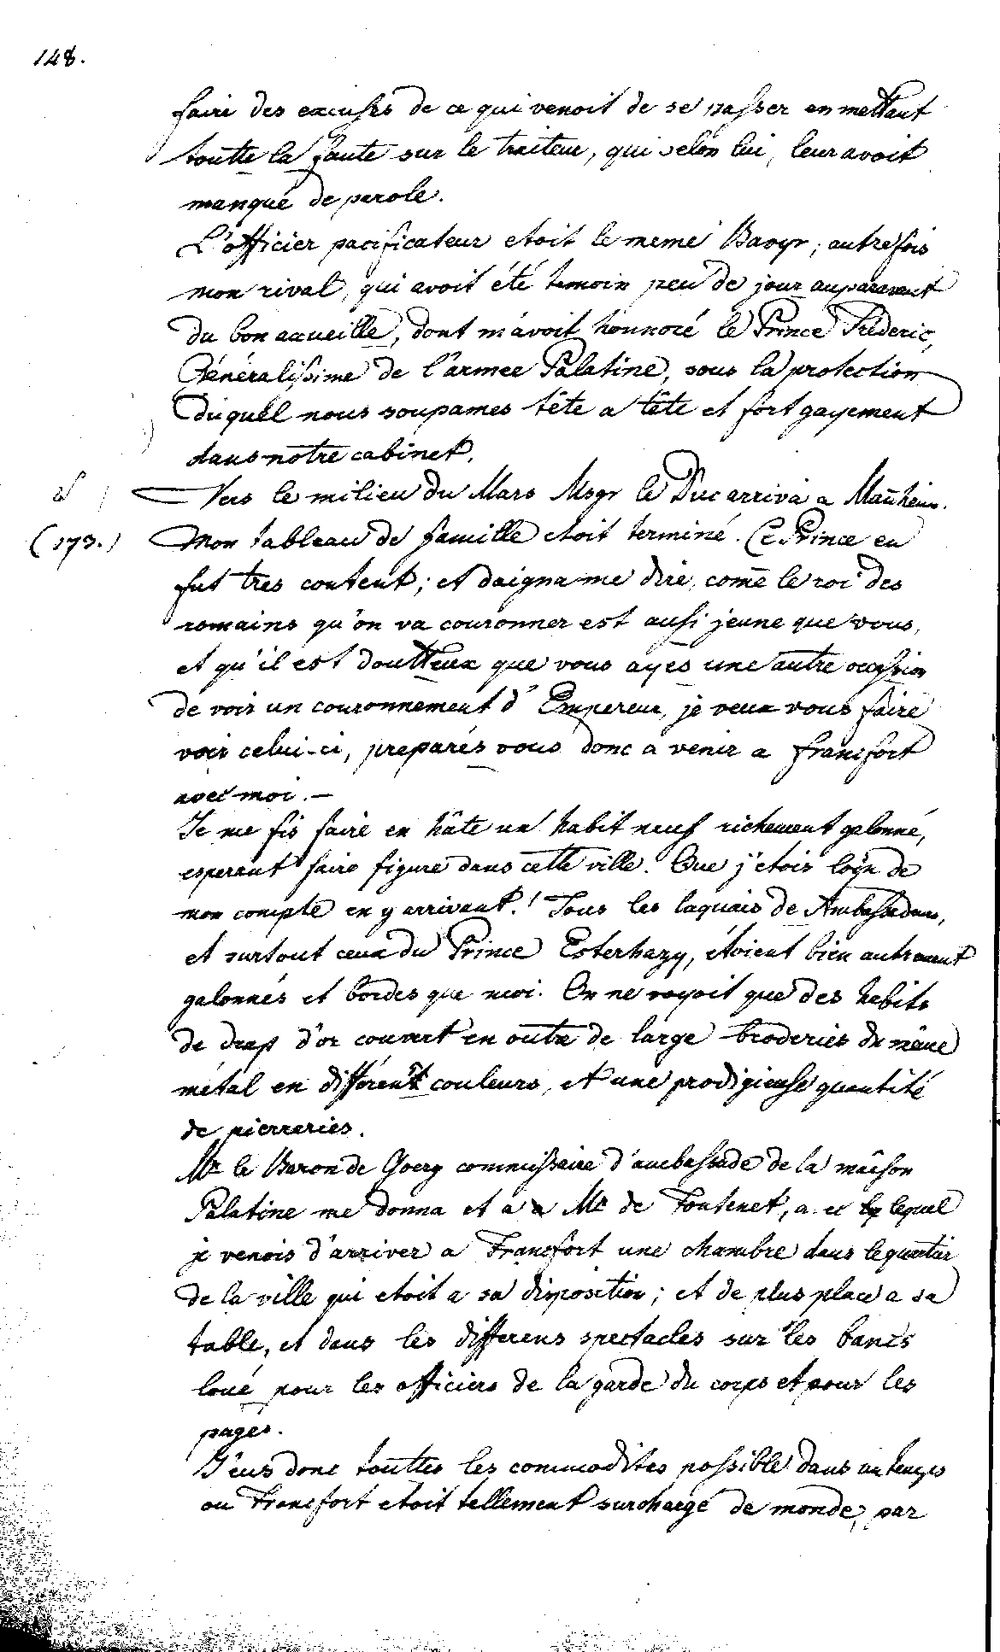 148.
faire des excuses de ce qui venoit de se passer en mettant
toutte la faute sur le traiteur, qui selon lui, leur avoit
manqué de parole.
L'officier pacificateur etoit le meme Baoyr, autrefois
mon rival, qui avoit été temoin peu de jour auparavant
du bon acueille, dont m'avoit honnoré le Prince Fréderic,
Généralissime de l'armee Palatine, sous la protection
duquel nous soupames tête a tête et fort gayement
dans notre cabinet.
Vers le milieu du Mars Msgr le Duc arriva a Mañheim.
(173.) Mon tableau de famille etoit terminé. Ce Prince en
fut tres content; et daigna me dire, come le roi des
romains qu'on va couronner est aussi jeune que vous,
et qu'il est doutteux que vous ayes une autre occasion
de voir un couronnement d'Empereur, je veux vous faire
voir celui-ci, preparés vous donc a venir a francfort
avec moi. —
Je me fis faire en hâte un habit neuf richement galonné,
esperant faire figure dans cette ville. Que j'etois loin de
mon compte en y arrivant! Tous les laquais de Ambassadeurs,
et surtout ceux du Prince Esterhazy, étoient bien autrement
galonnés et bordés que moi. On ne voyoit que des habits
de drap d'or couvert en outre de large broderies du même
métal en différent couleurs, et une prodigieuse quantité
de pierreries.
Mr le Baron de Goery commissaire d'ambassade de la maison
Palatine me donna et a Mr de Fontenet, a lequel
je venois d'arriver a Francfort une chambre dans le quartier
de la ville qui etoit a sa disposition; et de plus place a sa
table, et dans les differens spectacles sur les bancs
loué pour les officiers de la garde du corps et pour les
pages.
J'eus donc touttes les commodités possible dans un temps
ou Francfort etoit tellement surchargé de monde, par